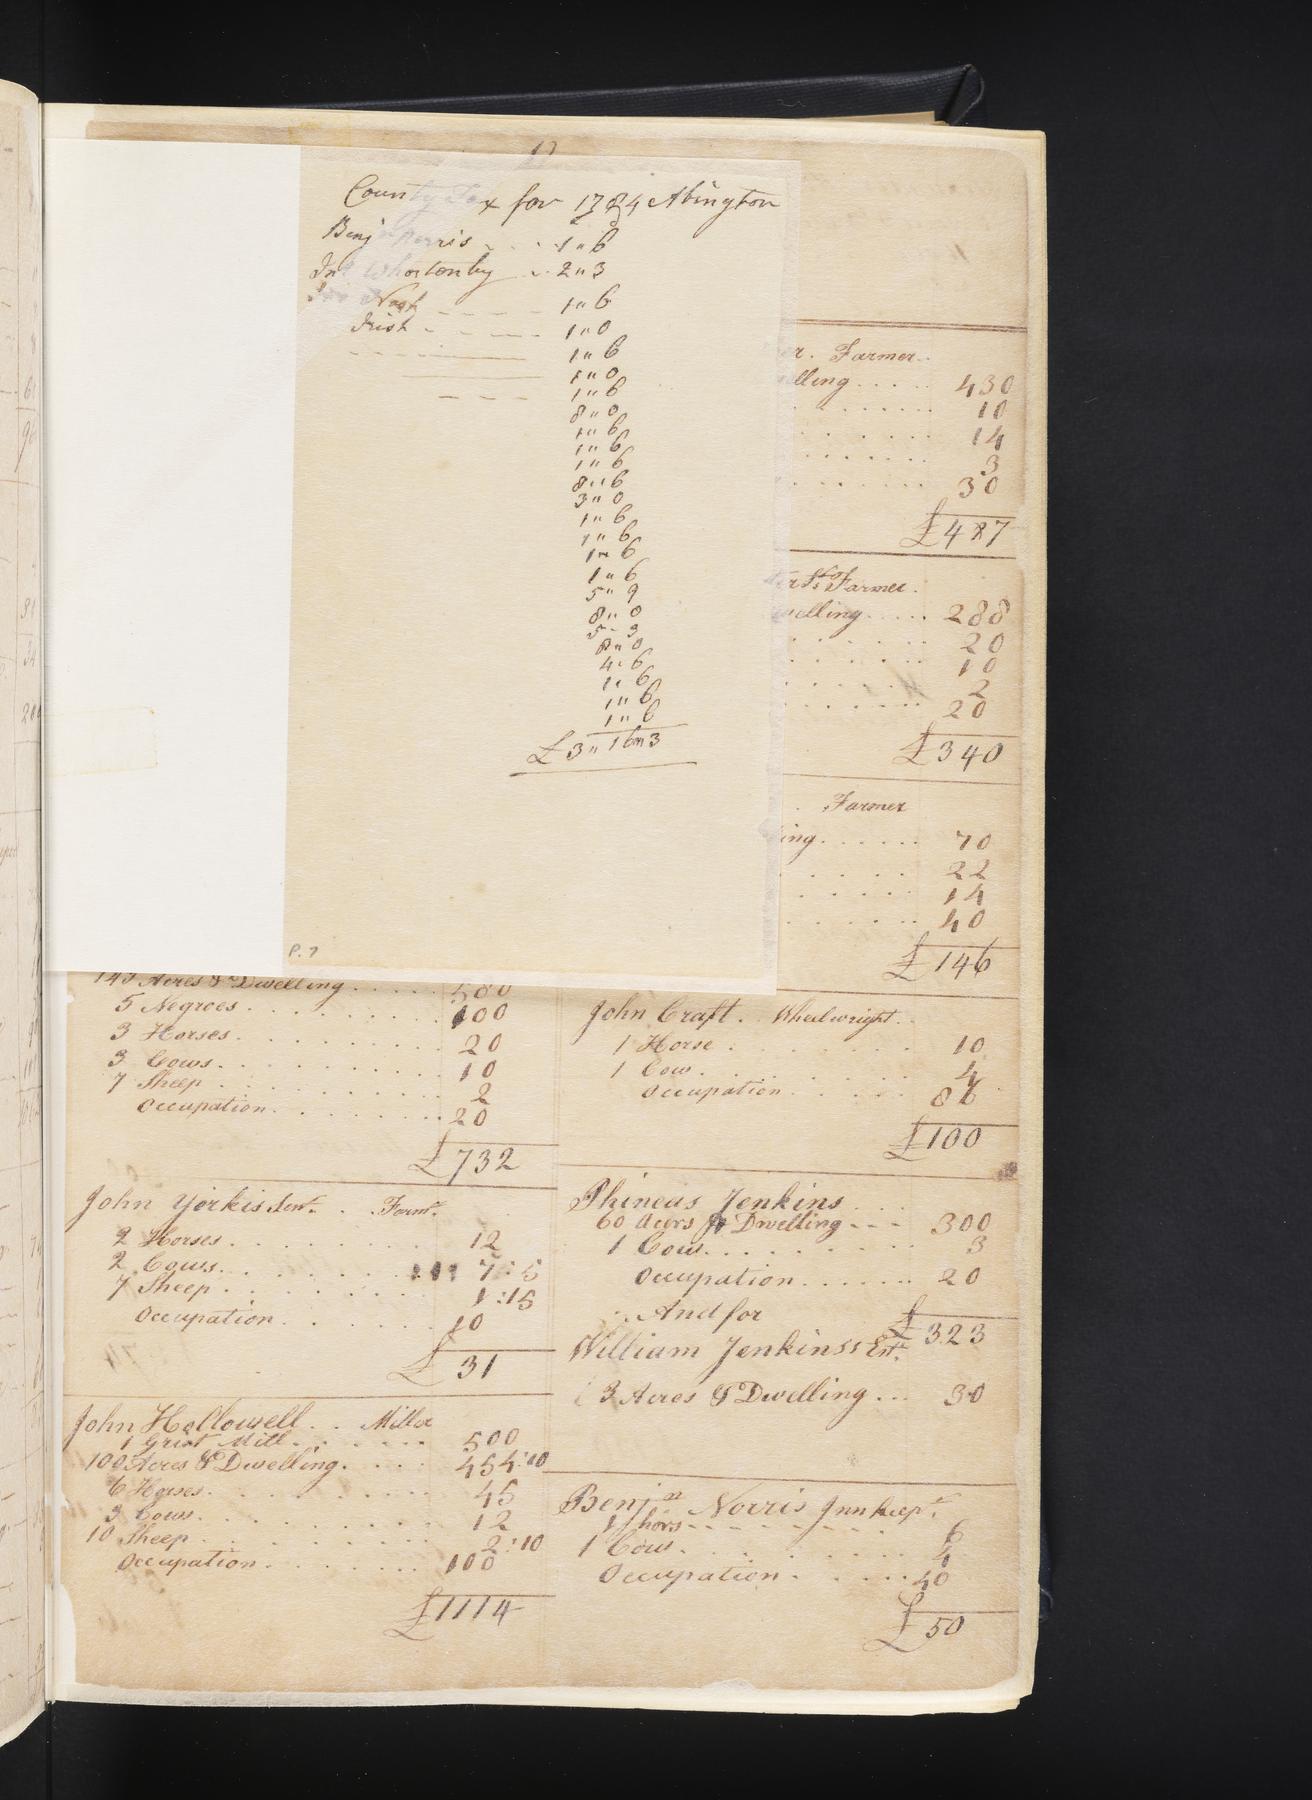 County Tax for 1784 Abington
Benjn Norris - - - 1 " 6
Jno Whortonby - - 2 " 3
Nash - - - - 1 " 6
Irish - - - - 1 " 0
1 " 6
1 " 0
1 " 6
8 " 0
1 " 6
1 " 6
1 " 6
8 " 6
3 " 0
1 " 6
1 " 6
1 " 6
1 " 6
5 " 9
8 " 0
5 - 3
8 " 0
4 " 6
1 " 6
1 " 6
1 " 6
£3 " 16 " 3
P. 7
145 Acres & Dwelling . . . . 580
5 Negroes . . . . 100
3 Horses . . . . 20
3 Cows . . . . 10
7 Sheep . . . . 2
Occupation . . . . 20
£732
John Yorkis Senr. . Farmr.
2 Horses . . . . 12
2 Cows . . . . 7 : 5
7 Sheep . . . . 1 : 15
Occupation . . . . 10
£ 31
John Hollowell . . Miller
1 Grist Mill . . . . 500
100 Acres & Dwelling . . . . 454:10
6 Horses . . . . 45
3 Cows . . . . 12
10 Sheep . . . . 2:10
Occupation . . . . 100
£1114
er. Farmer
elling . . . . 430
10
14
3
30
£487
ter Sr. Farmer
welling . . . . 288
20
10
2
20
£340
. Farmer
ing . . . . 70
22
14
40
£146
John Craft . Wheelwright
1 Horse . . . . 10
1 Cow . . . . 4
Occupation . . . . 86
£100
Phineas Jenkins . . .
60 Acers & Dwelling - - - 300
1 Cow . . . . 3
Occupation . . . . 20
And for £323
William Jenkinss Est.
3 Acres & Dwelling . . . 30
Benjn Norris Innkeepr.
1 hors - - - - 6
1 Cow . . . . 4
Occupation . . . . 40
£ 50